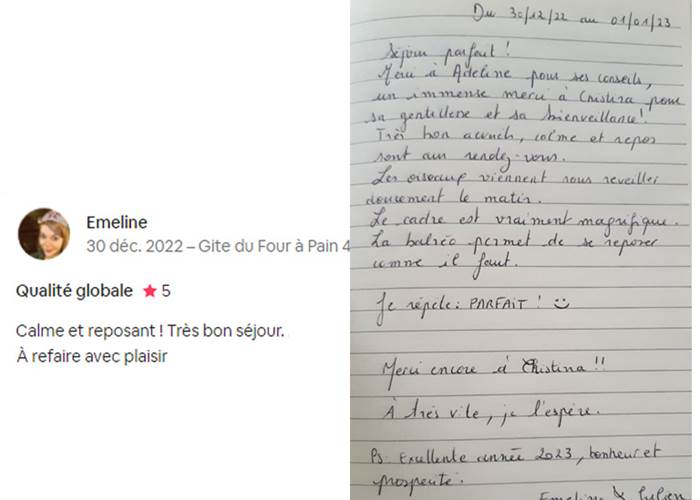 Emeline
30 déc. 2022 – Gite du Four à Pain 4
Qualité globale ★ 5
Calme et reposant ! Très bon séjour.
À refaire avec plaisir
Du 30/12/22 au 01/01/23
Séjour parfait !
Merci à Adeline pour ses conseils,
un immense merci à Christina pour
sa gentillesse et sa bienveillance !
Très bon accueil, calme et repos
sont au rendez-vous.
Les oiseaux viennent nous reveiller
doucement le matin.
Le cadre est vraiment magnifique.
La balnéo permet de se reposer
comme il faut.
Je répète : PARFAIT ! ☺
Merci encore à Christina !!
À très vite, je l'espère.
Ps: Exellente année 2023, bonheur et
prosperité.
Emeline & Julien